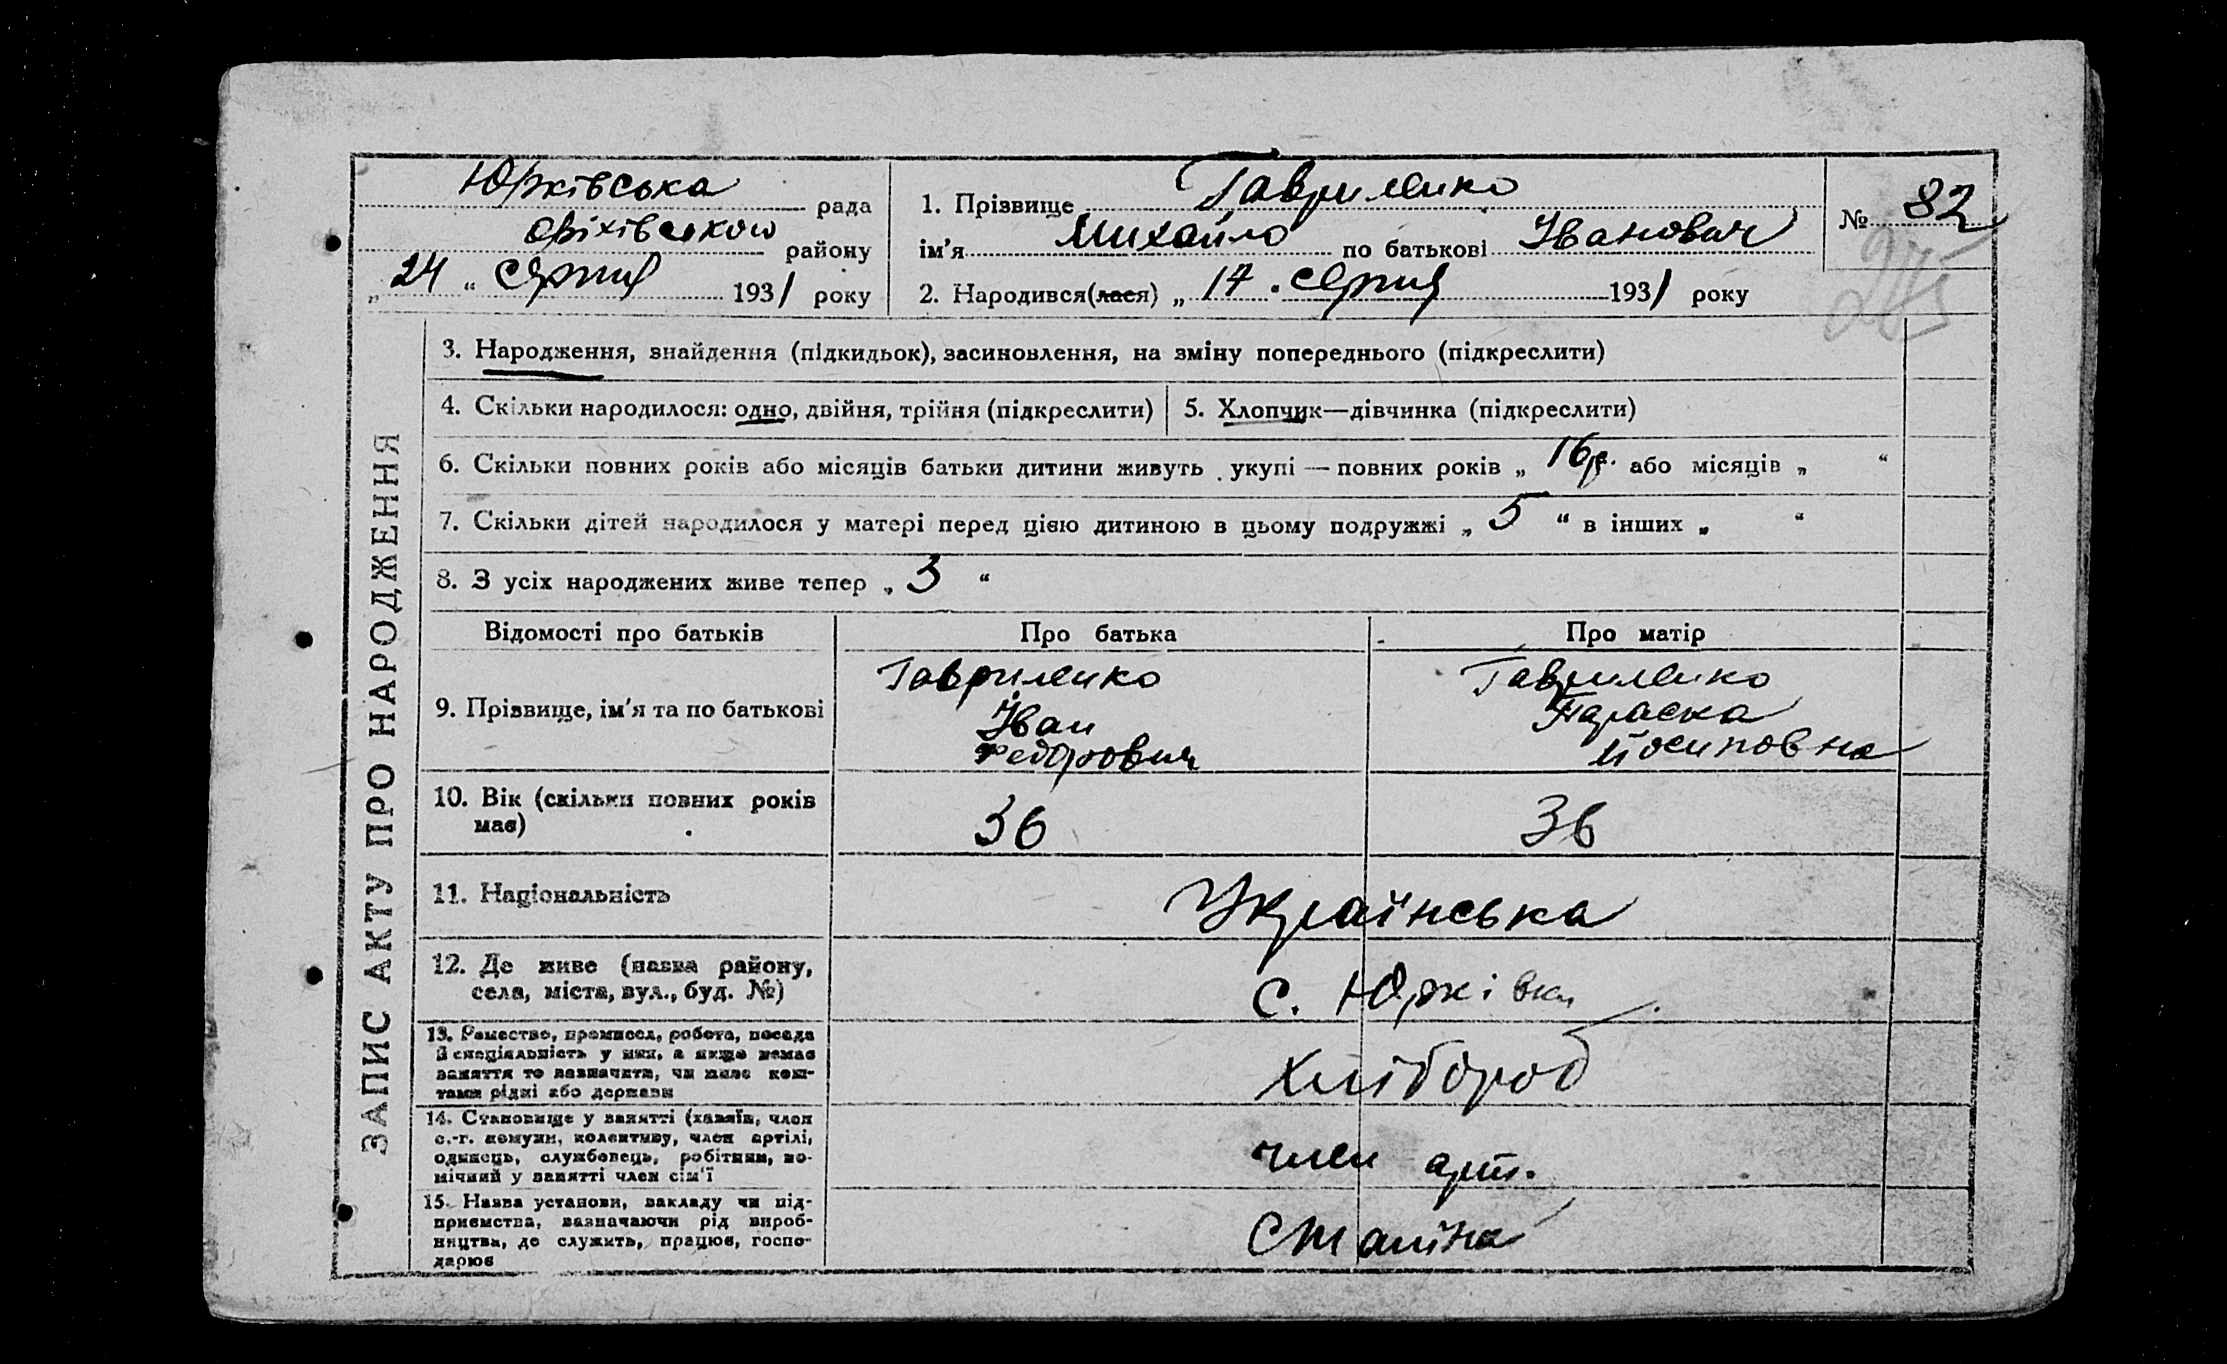 Юрківська рада
Оріхівського району
„ 24 " серпня 1931 року
1. Прізвище Гавриленко
ім'я Михайло по батькові Іванович
2. Народився(лася) „ 17 . серпня 1931 року
№ 82
275
ЗАПИС АКТУ ПРО НАРОДЖЕННЯ
3. Народження, знайдення (підкидьок), засиновлення, на зміну попереднього (підкреслити)
4. Скільки народилося: одно, двійня, трійня (підкреслити)
5. Хлопчик—дівчинка (підкреслити)
6. Скільки повних років або місяців батьки дитини живуть укупі — повних років „ 16 р. або місяців „ "
7. Скільки дітей народилося у матері перед цією дитиною в цьому подружжі „ 5 " в інших „ "
8. З усіх народжених живе тепер „ 3 "
Відомості про батьків
Про батька
Про матір
9. Прізвище, ім'я та по батькові
Гавриленко
Іван
Федорович
Гавриленко
Параска
Йосиповна
10. Вік (скільки повних років
має)
36
36
11. Національність
Українська
12. Де живе (назва району,
села, міста, вул., буд. №)
с. Юрківка
13. Ремество, промисел, робота, посада
й спеціяльність у них, а якщо немає
заняття то зазначити, чи живе кош-
тами рідні або держави
Хлібороб
14. Становище у занятті (хазяїн, член
с.-г. комуни, колективу, член артілі,
одинець, службовець, робітник, по-
мічний у занятті член сім'ї
член арт.
15. Назва установи, закладу чи під-
приємства, зазначаючи рід вироб-
ництва, де служить, працює, госпо-
дарює
Сталіна